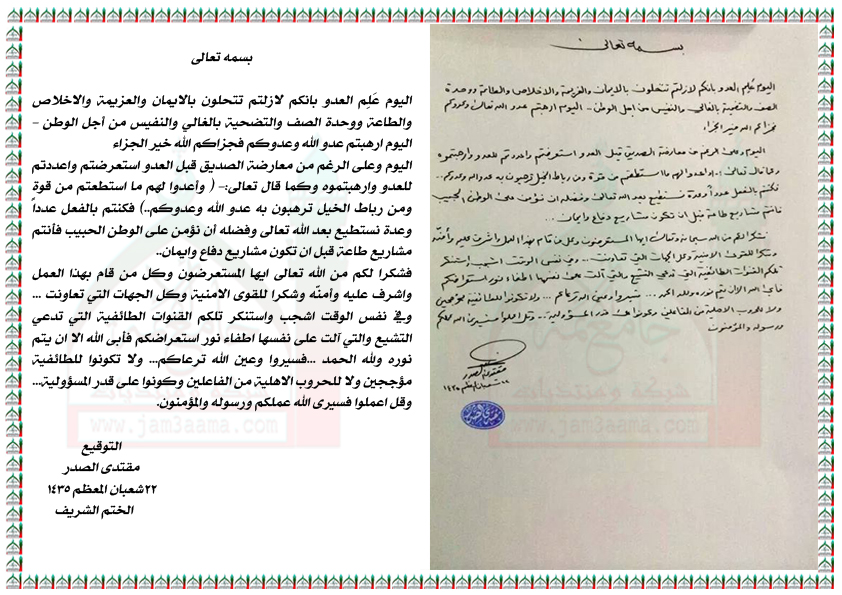 بسمه تعالى
اليوم عَلِم العدو بانكم لازلتم تتحلون بالايمان والعزيمة والاخلاص والطاعة ووحدة
الصف والتضحية بالغالي والنفيس من اجل الوطن - اليوم ارهبتم عدو الله تعالى وعدوكم
فجزاكم الله خير الجزاء
اليوم وعلى الرغم من معارضة الصديق قبل العدو استعرضتم واعددتم للعدو وارهبتموه
وكما قال تعالى:- (واعدوا لهم ما استطعتم من قوة ومن رباط الخيل ترهبون به عدو الله وعدوكم..
فكنتم بالفعل عدداً وعدة نستطيع بعد الله تعالى وفضله ان نؤمن على الوطن الحبيب
فانتم مشاريع طاعة قبل ان تكون مشاريع دفاع وايمان..
فشكرا لكم من الله سبحانه وتعالى ايها المستعرضون وكل من قام بهذا العمل واشرف عليه وأمنّه
وشكرا للقوى الامنية وكل الجهات التي تعاونت ... وفي نفس الوقت اشجب واستنكر
تلكم القنوات الطائفية التي تدعي التشيع والتي آلت على نفسها اطفاء نور استعراضكم
فأبى الله الا ان يتم نوره ولله الحمد ... فسيروا وعين الله ترعاكم ... ولا تكونوا للطائفية مؤججين
ولا للحروب الاهلية من الفاعلين وكونوا على قدر المسؤولية ... وقل اعملوا فسيرى الله عملكم
ورسوله والمؤمنون
مقتدى الصدر
٢٢ شعبان المعظم ١٤٣٥
شبكة ومنتديات
جامعمة
www.jam3aama.com
بسمه تعالى
اليوم عَلِم العدو بانكم لازلتم تتحلون بالايمان والعزيمة والاخلاص
والطاعة ووحدة الصف والتضحية بالغالي والنفيس من أجل الوطن -
اليوم ارهبتم عدو الله وعدوكم فجزاكم الله خير الجزاء
اليوم وعلى الرغم من معارضة الصديق قبل العدو استعرضتم واعددتم
للعدو وارهبتموه وكما قال تعالى:- ( وأعدوا لهم ما استطعتم من قوة
ومن رباط الخيل ترهبون به عدو الله وعدوكم..) فكنتم بالفعل عدداً
وعدة نستطيع بعد الله تعالى وفضله أن نؤمن على الوطن الحبيب فأنتم
مشاريع طاعة قبل ان تكون مشاريع دفاع وايمان..
فشكرا لكم من الله تعالى ايها المستعرضون وكل من قام بهذا العمل
واشرف عليه وأمنّه وشكرا للقوى الامنية وكل الجهات التي تعاونت ...
وفي نفس الوقت اشجب واستنكر تلكم القنوات الطائفية التي تدعي
التشيع والتي آلت على نفسها اطفاء نور استعراضكم فأبى الله الا ان يتم
نوره ولله الحمد ...فسيروا وعين الله ترعاكم... ولا تكونوا للطائفية
مؤججين ولا للحروب الاهلية من الفاعلين وكونوا على قدر المسؤولية...
وقل اعملوا فسيرى الله عملكم ورسوله والمؤمنون.
التوقيع
مقتدى الصدر
٢٢شعبان المعظم ١٤٣٥
الختم الشريف
شبكة ومنتديات
www.jam3aama.com